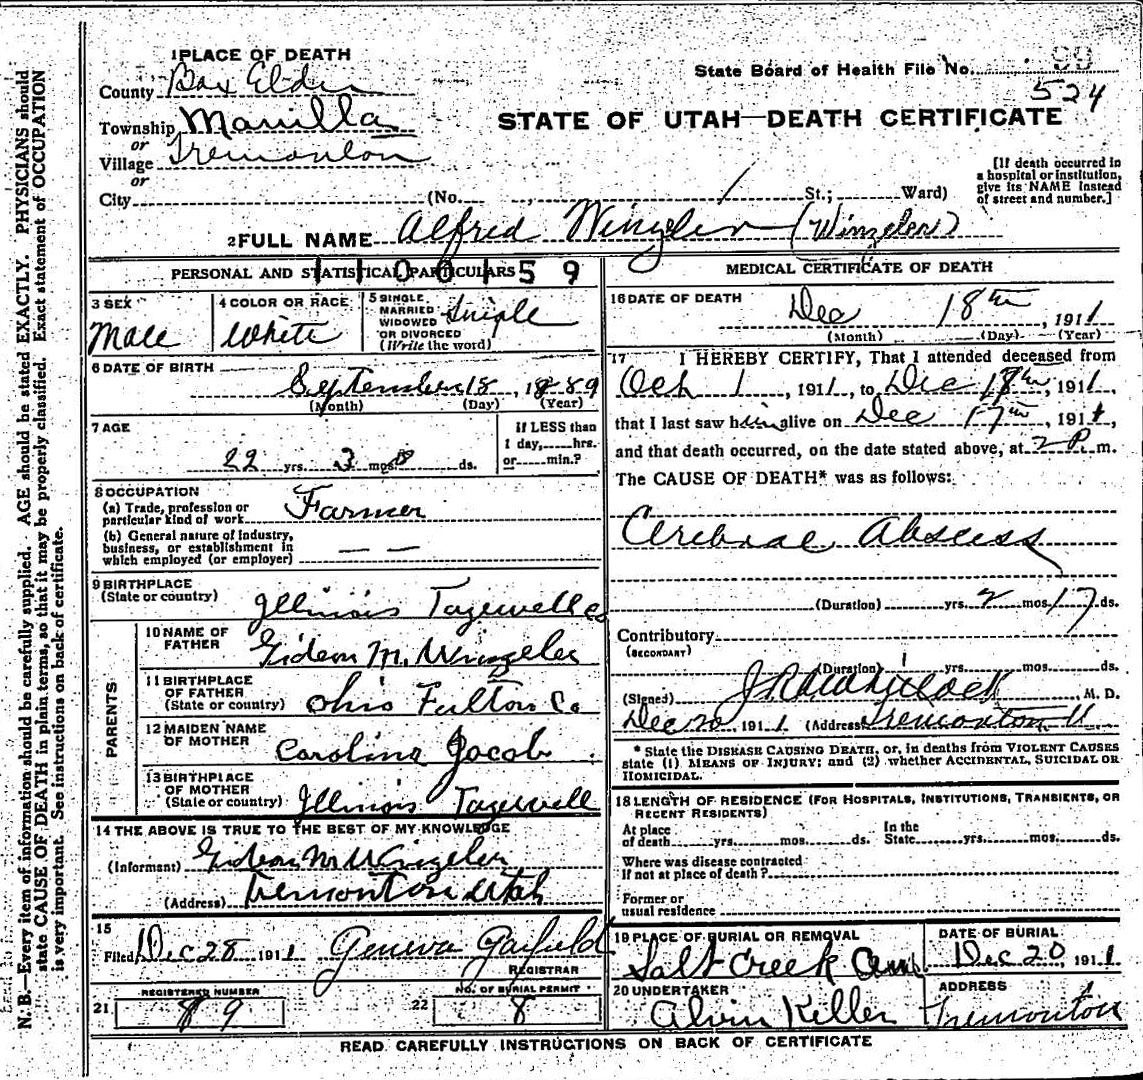 1 PLACE OF DEATH
County Box Elder
Township Manilla
or
Village Tremonton
or
City (No. St.; Ward)
State Board of Health File No. 99
524
STATE OF UTAH—DEATH CERTIFICATE
[If death occurred in
a hospital or institution,
give its NAME instead
of street and number.]
2 FULL NAME Alfred Winzeler (Winzeler)
PERSONAL AND STATISTICAL PARTICULARS
59
3 SEX
Male
4 COLOR OR RACE
White
5 SINGLE
MARRIED
WIDOWED
OR DIVORCED
(Write the word)
Single
6 DATE OF BIRTH
September 18, 1889
(Month) (Day) (Year)
7 AGE
22 yrs. 3 mos. 0 ds.
If LESS than
1 day, hrs.
or min.?
8 OCCUPATION
(a) Trade, profession or
particular kind of work Farmer
(b) General nature of industry,
business, or establishment in
which employed (or employer) — —
9 BIRTHPLACE
(State or country) Illinois Tazewell Co
PARENTS
10 NAME OF
FATHER Gideon M. Winzeler
11 BIRTHPLACE
OF FATHER
(State or country) Ohio Fulton Co
12 MAIDEN NAME
OF MOTHER Carolina Jacob
13 BIRTHPLACE
OF MOTHER
(State or country) Illinois Tazewell
14 THE ABOVE IS TRUE TO THE BEST OF MY KNOWLEDGE
(Informant) Gideon M Winzeler
(Address) Tremonton Utah
15
Filed Dec 28 1911 Geneva Garfield
REGISTRAR
21 REGISTERED NUMBER
89
22 NO. OF BURIAL PERMIT
8
MEDICAL CERTIFICATE OF DEATH
16 DATE OF DEATH
Dec 18th, 1911
(Month) (Day) (Year)
17 I HEREBY CERTIFY, That I attended deceased from
Oct 1, 1911, to Dec 18th, 1911,
that I last saw him alive on Dec 17th, 1911,
and that death occurred, on the date stated above, at 2 P. m.
The CAUSE OF DEATH* was as follows:
Cerebral Abscess
(Duration) yrs. 2 mos. 17 ds.
Contributory
(SECONDARY)
(Duration) yrs. mos. ds.
(Signed) M. D.
Dec 20, 1911 (Address) Tremonton U
* State the DISEASE CAUSING DEATH, or, in deaths from VIOLENT CAUSES
state (1) MEANS OF INJURY; and (2) whether ACCIDENTAL, SUICIDAL OR
HOMICIDAL.
18 LENGTH OF RESIDENCE (FOR HOSPITALS, INSTITUTIONS, TRANSIENTS, OR
RECENT RESIDENTS)
At place
of death yrs. mos. ds.
In the
State yrs. mos. ds.
Where was disease contracted
If not at place of death?
Former or
usual residence
19 PLACE OF BURIAL OR REMOVAL
Salt Creek Cem
DATE OF BURIAL
Dec 20, 1911
20 UNDERTAKER
Alvin Keller
ADDRESS
Tremonton
READ CAREFULLY INSTRUCTIONS ON BACK OF CERTIFICATE
N. B.—Every item of information should be carefully supplied. AGE should be stated EXACTLY. PHYSICIANS should
state CAUSE OF DEATH in plain terms, so that it may be properly classified. Exact statement of OCCUPATION
is very important. See instructions on back of certificate.